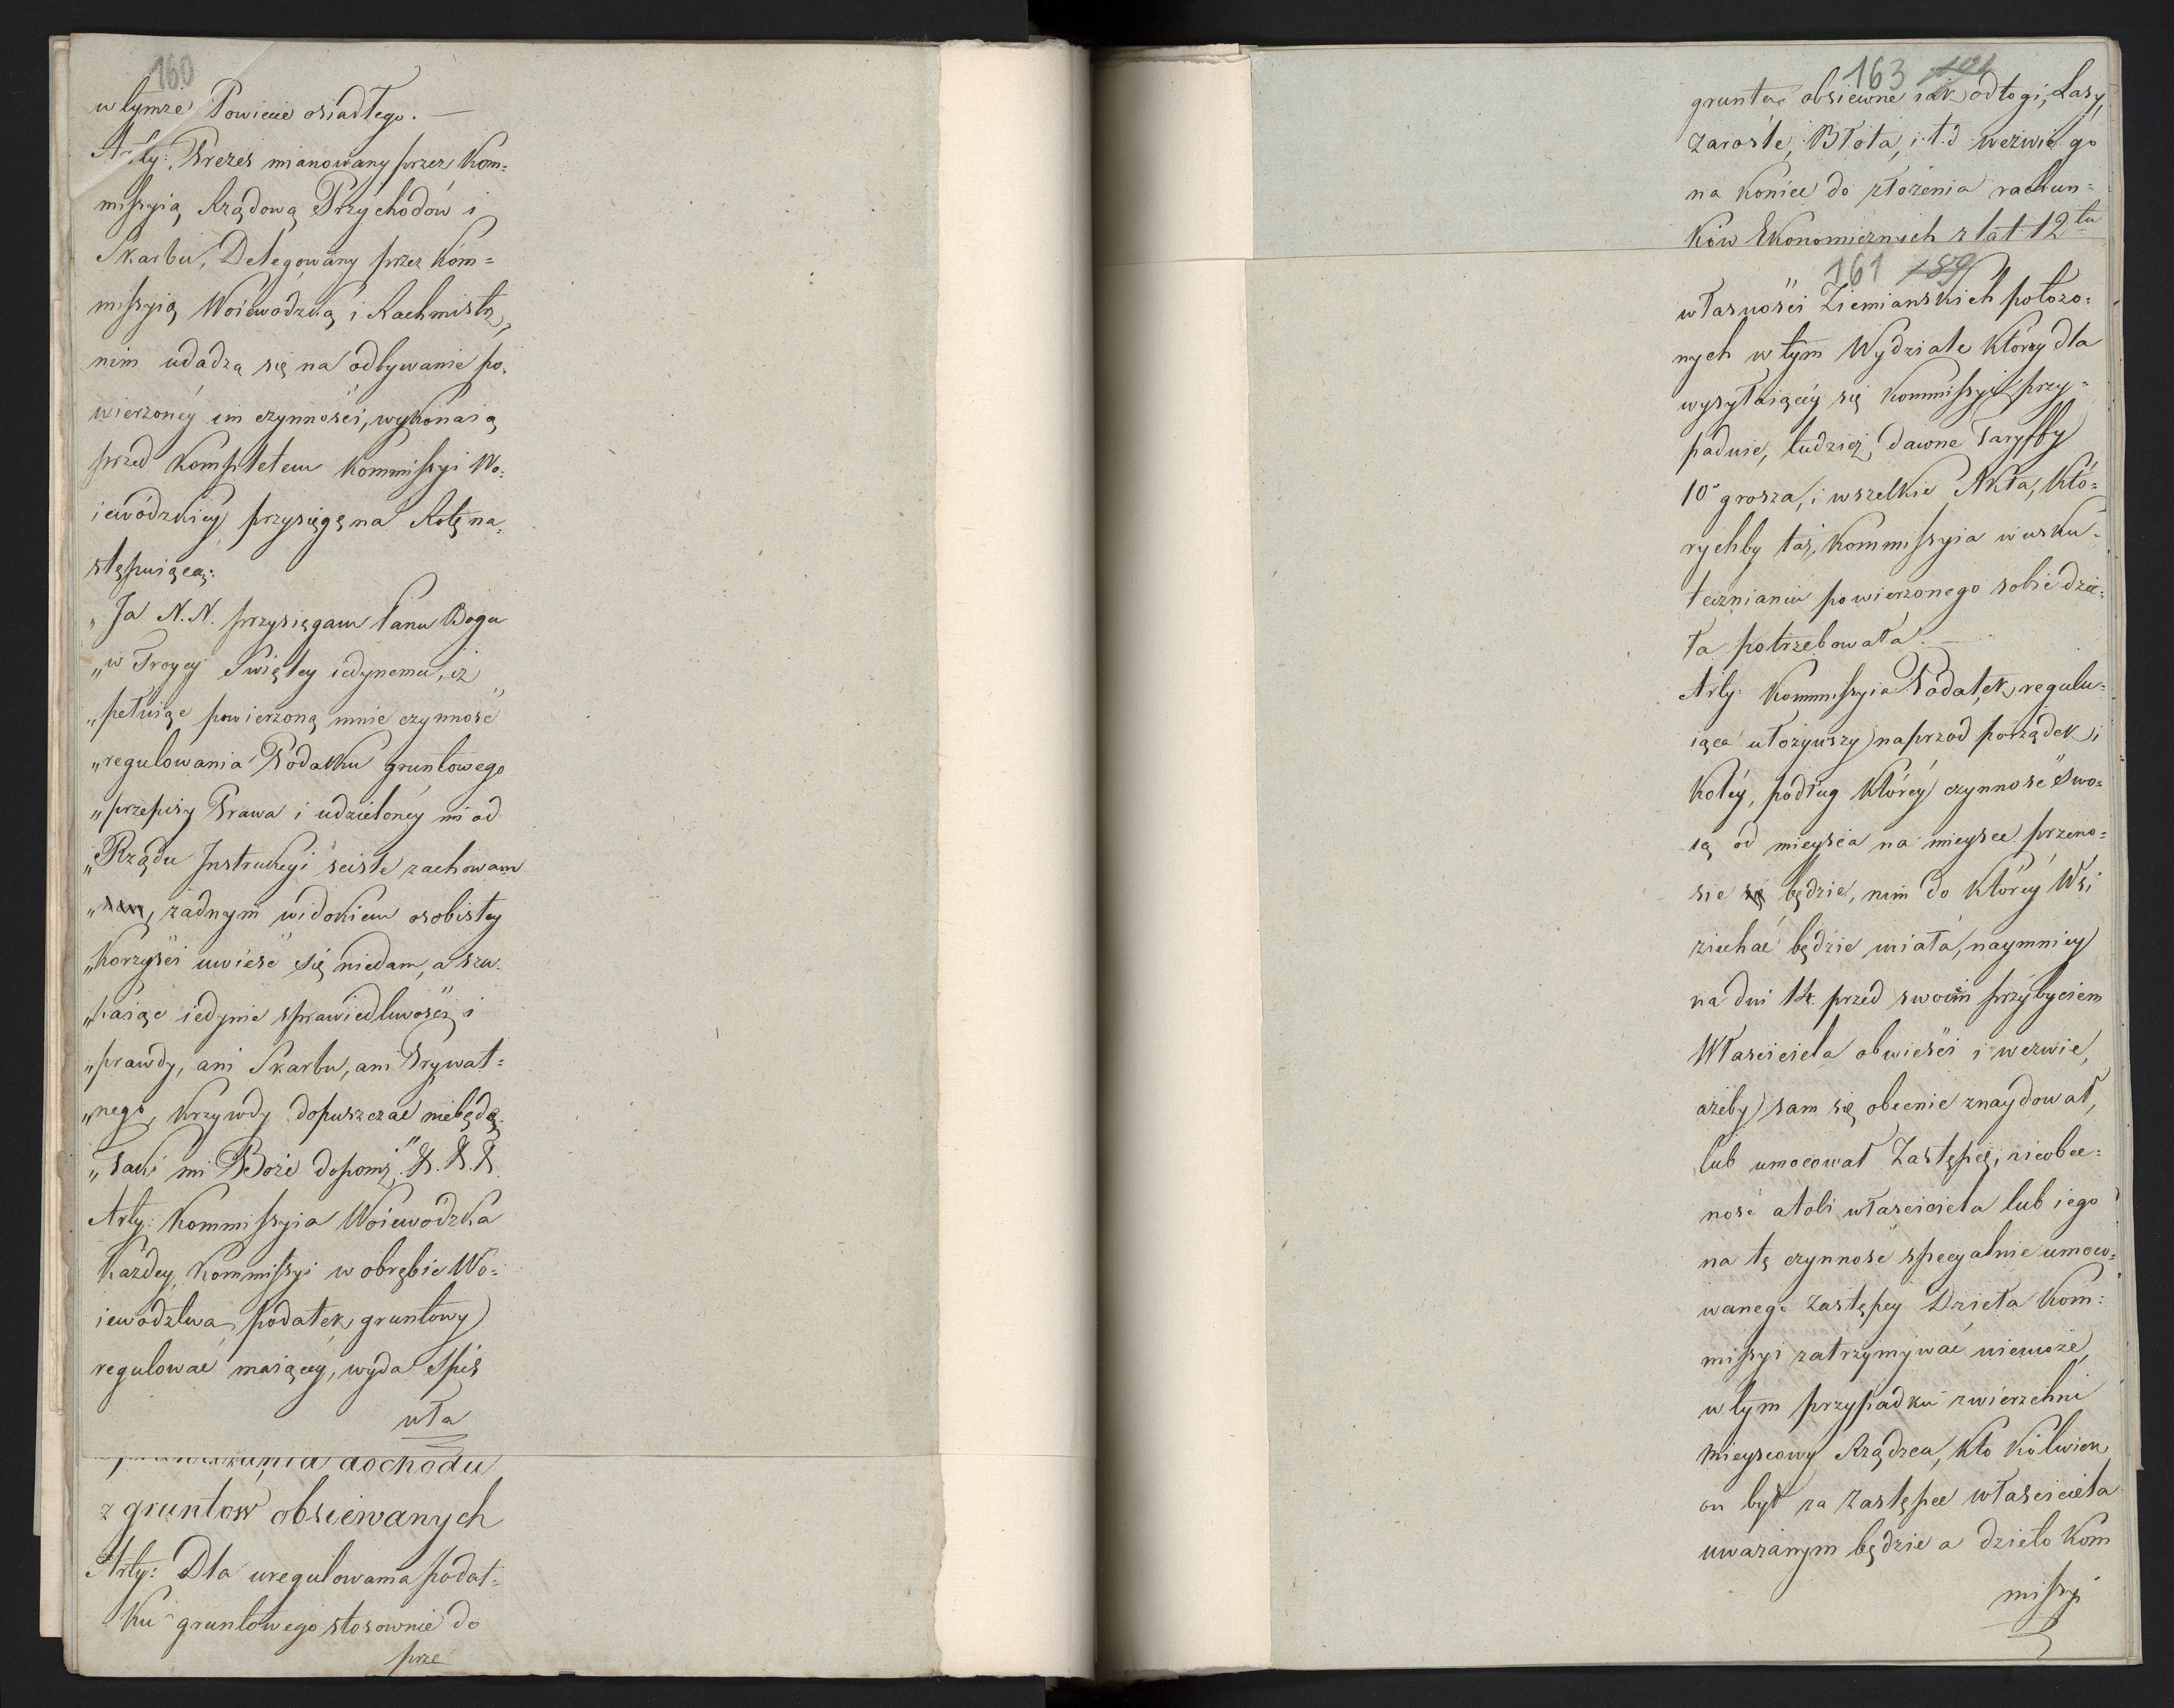 160
w tymże Powiecie osiadłego. —
Arty: Prezes mianowany przez Kom=
missyią Rządową Przychodów i
Skarbu, Delegowany przez Kom=
missyią Woiewodzką i Rachmistrz,
nim udadzą się na odbywanie po=
wierzoney im czynności, wykonaią
przed Kompletem Kommissyi Wo=
iewódzkiey przysięgę na Rotę na=
stępuiącą:
„Ja N. N. przysięgam Panu Bogu
„w Troycy Swiętey iedynemu, iż
„pełniąc powierzoną mnie czynność
„regulowania Podatku gruntowego
„przepisy Prawa i udzieloney mi od
„Rządu Instrukcyi scisle zachowam
„żadnym widokiem osobistey
„Korzyści uwieść się niedam, a szu=
„kaiąc iedynie sprawiedliwości i
„prawdy, ani Skarbu, ani Prywat=
„nego, Krzywdy dopuszczać niebędę.
„Tak mi Boże dopomóż"
Arty: Kommissyia Woiewódzka
Każdey Kommissyi w obrębie Wo=
iewództwa podatek gruntowy
regulować maiącey, wyda Spis
wła
dochodu
z gruntow obsiewanych
Arty: Dla uregulowania podat=
ku gruntowego stosownie do
prze
163
grunta obsiewne iak odłogi, Lasy,
Zarośle, Błota, i. t. d wezwie go
na koniec do złożenia rachun=
ków Ekonomicznych z lat 12tu
161 159
własności Ziemianskich położo=
nych w tym Wydziale który dla
wysyłaiącéy się Kommissyi przy=
padnie, tudzież dawne Taryffy
10o grosza, i wszelkie Akta, któ=
rychby taż Kommissyia w usku=
tecznianiu powierzonego sobie dzie=
ła potrzebowała. —
Arty: Kommissyia Podatek regulu=
iąca ułożywszy naprzod porządek i
Koléy, podług któréy czynność swo=
ią od mieysca na mieysce przeno=
sić będzie, nim do któréy Wsi
ziechać będzie miała, naymniey
na dni 14. przed swoim przybyciem
Właściciela obwieści i wezwie,
ażeby sam się obecnie znaydował,
lub umocował Zastępcę, nieobec=
ność atoli właściciela lub iego
na tę czynność specyalnie umoco=
wanego zastępcy Dzieła Kom=
missyi zatrzymywać niemoże,
w tym przypadku zwierzchni
mieyscowy Rządzca, kto kólwiek
on był za zastępcę właściciela
uważanym będzie a dzieło Kom
missyi